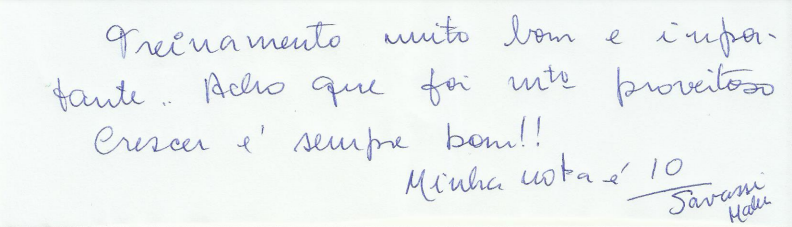 Treinamento muito bom e impor-
tante.. Acho que foi mto proveitoso
Crescer é sempre bom!!
Minha nota é 10
Savassi